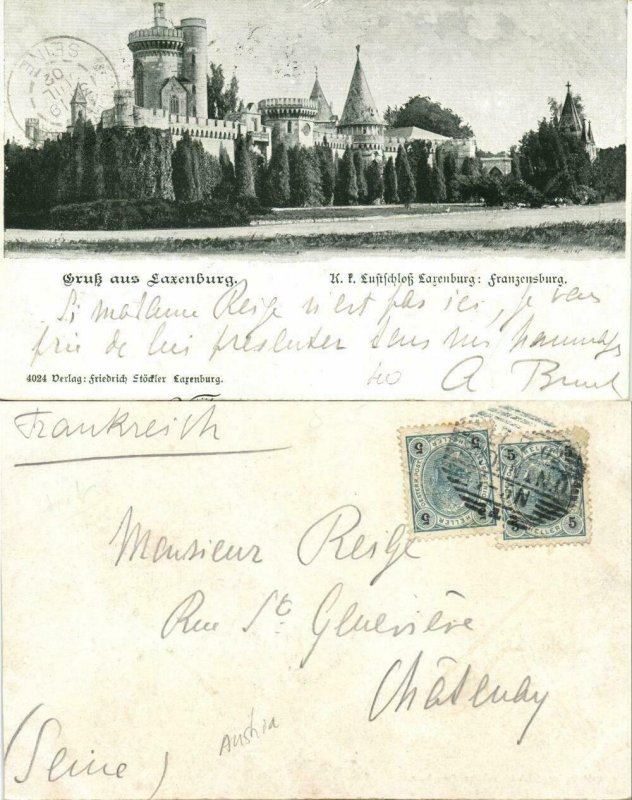 SEINE
Gruß aus Laxenburg.
K. k. Lustschloß Laxenburg: Franzensburg.
Si madame Reige n'est pas ici, je vous
prie de lui presenter tous mes hommages
4024 Verlag: Friedrich Stöckler Laxenburg.
A. Brunel
Frankreich
5 5
HELLER
5 5
HELLER
Monsieur Reige
Rue Ste Geneviève
Châtenay
Austria
(Seine)